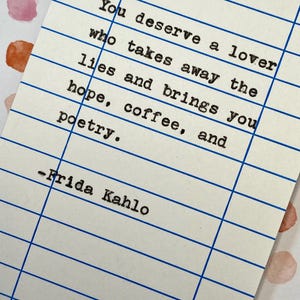 You deserve a lover
who takes away the
lies and brings you
hope, coffee, and
poetry.
-Frida Kahlo